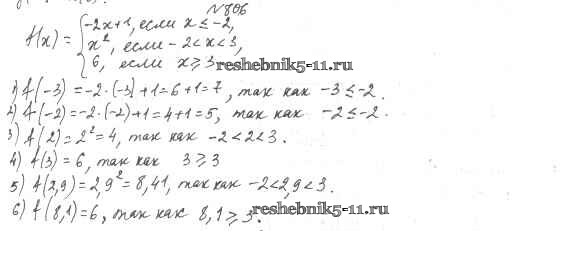 № 806
f(x) = { -2x+1, если x ≤ -2,
x², если -2 < x < 3,
6, если x ≥ 3
reshebnik5-11.ru
1) f(-3) = -2·(-3)+1=6+1=7, так как -3 ≤ -2.
2) f(-2)=-2·(-2)+1=4+1=5, так как -2 ≤ -2.
3) f(2)=2²=4, так как -2<2<3.
4) f(3)=6, так как 3 ≥ 3
5) f(2,9)=2,9²=8,41, так как -2<2,9<3.
6) f(8,1)=6, так как 8,1 ≥ 3.
reshebnik5-11.ru